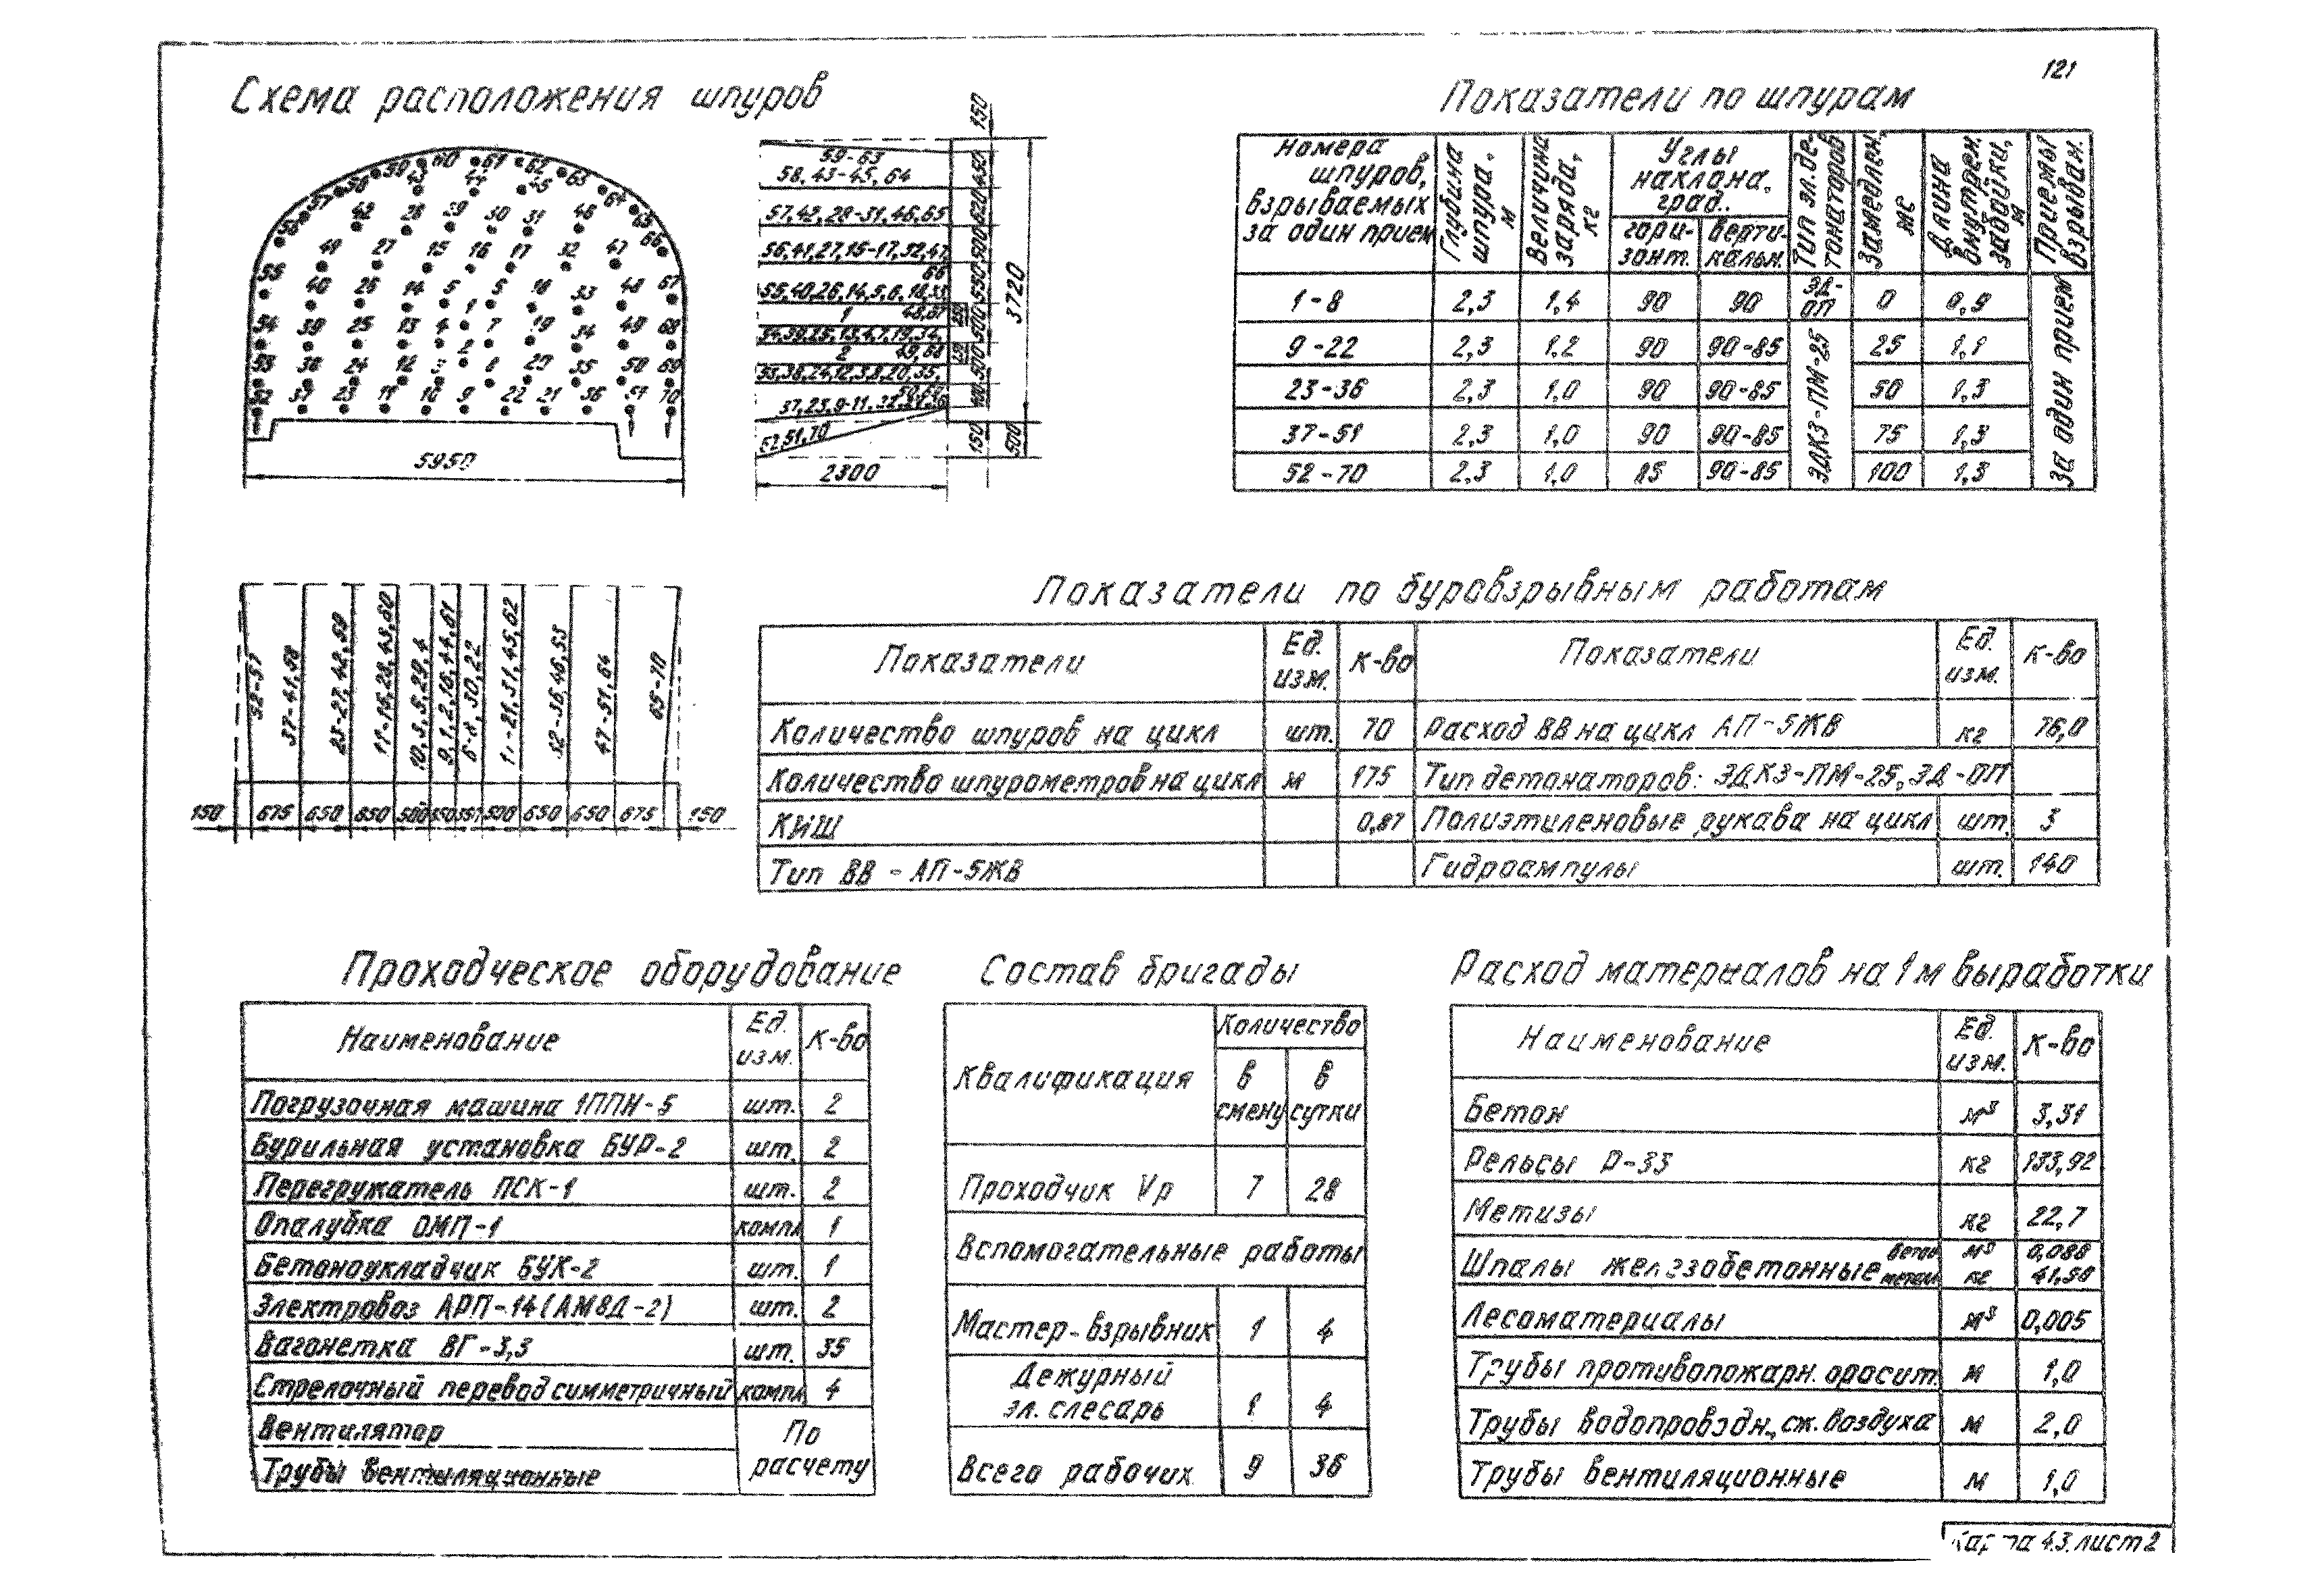 121
Схема расположения шпуров
59-63
58, 43-45, 64
57,42, 28-31,46,65
56,41,27,15-17,32,47
66
55,40,26,14,5,6,18,33
48,67
1
34,39,25,13,4,7,19,34,
2 49,68
53,38,24,12,3,8,20,35,
52,51,70
150
3720
150
500
5950
2300
Показатели по шпурам
Номера шпуров, взрываемых за один прием
Глубина шпура, м
Величина заряда, кг
Углы наклона, град.
гори-зонт.
верти-кальн.
Тип эл.де-тонаторов
Замедлен. мс
Длина внутрен. забойки, м
Приемы взрыван.
1-8 2,3 1,4 90 90 ЭД-ОП 0 0,9
9-22 2,3 1,2 90 90-85 25 1,1
23-36 2,3 1,0 90 90-85 50 1,3
37-51 2,3 1,0 90 90-85 75 1,3
52-70 2,3 1,0 85 90-85 100 1,3
ЭДКЗ-ПМ-25
За один прием
52-57
37-41,58
23-27,42,59
11-15,28,43,60
9,1,2,16,44,61
47-51,64
65-70
150 675 650 650 500 350 350 500 650 650 675 150
Показатели по буровзрывным работам
Показатели Ед. изм. К-во Показатели Ед. изм. К-во
Количество шпуров на цикл шт. 70 Расход ВВ на цикл АП-5ЖВ кг 76,0
Количество шпурометров на цикл м 175 Тип детонаторов: ЭДКЗ-ПМ-25,ЭД-ОП
КИШ 0,87 Полиэтиленовые рукава на цикл шт. 3
Тип ВВ - АП-5ЖВ Гидроампулы шт. 140
Проходческое оборудование
Наименование Ед. изм. К-во
Погрузочная машина 1ППН-5 шт. 2
Бурильная установка БУР-2 шт. 2
Перегружатель ПСК-1 шт. 2
Опалубка ОМП-1 компл 1
Бетоноукладчик БУК-2 шт. 1
Электровоз АРП-14(АМ8Д-2) шт. 2
Вагонетка ВГ-3,3 шт. 35
Стрелочный перевод симметричный компл 4
Вентилятор
Трубы вентиляционные
По расчету
Состав бригады
Квалификация
Количество
в смену
в сутки
Проходчик Vр 7 28
Вспомогательные работы
Мастер-взрывник 1 4
Дежурный
эл. слесарь 1 4
Всего рабочих 9 36
Расход материалов на 1м выработки
Наименование Ед. изм. К-во
Бетон м³ 3,31
Рельсы Р-33 кг 133,92
Метизы кг 22,7
Шпалы железобетонные бетон м³ 0,088
метал кг 41,50
Лесоматериалы м³ 0,005
Трубы противопожарн. оросит. м 1,0
Трубы водопроводн., сж. воздуха м 2,0
Трубы вентиляционные м 1,0
Карта 4.3. лист 2